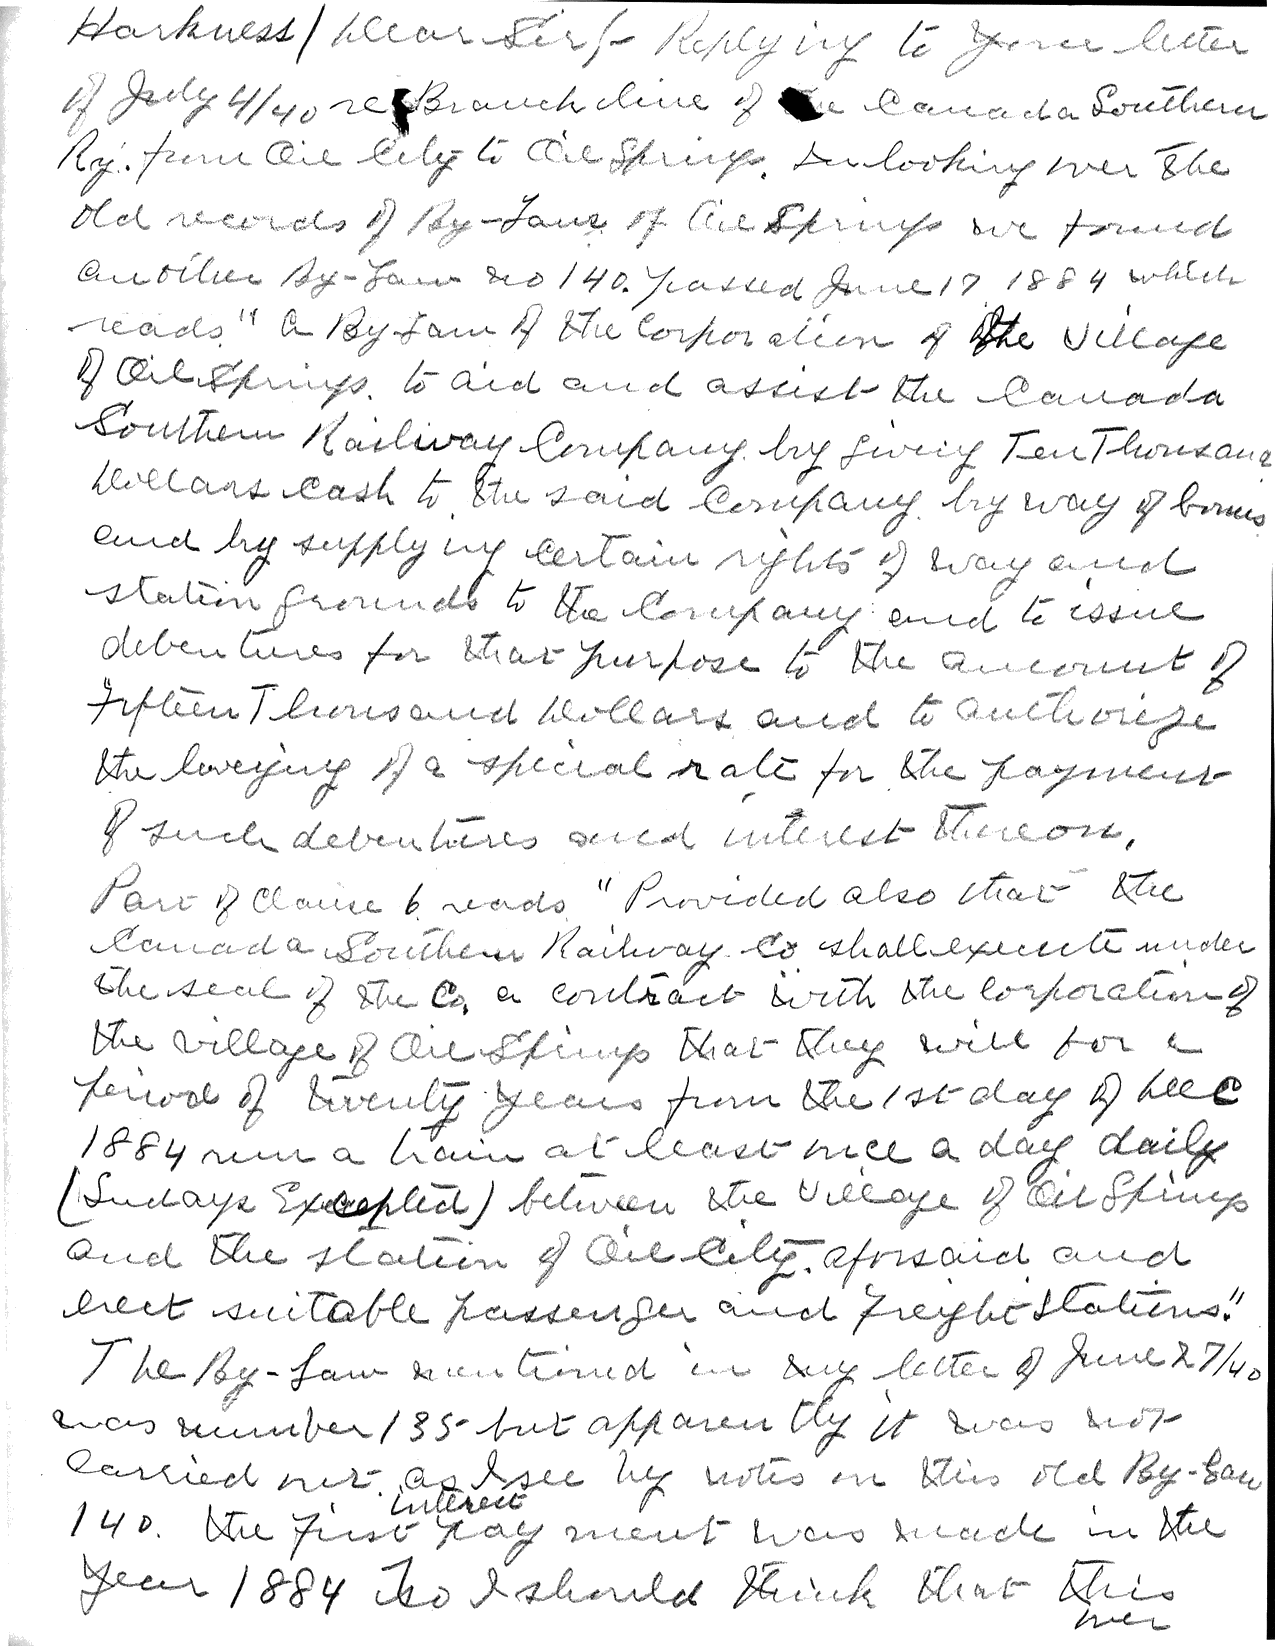 Harkness/ Dear Sir/- Replying to your letter
of July 4/40 re Branch line of the Canada Southern
Ry. from Oil City to Oil Springs. In looking over the
old records of By-Laws of Oil Springs we found
another By-Law no 140. passed June 17 1884 which
reads " A By-Law of the Corporation of the Village
of Oil Springs. to aid and assist the Canada
Southern Railway Company. by giving Ten Thousand
Dollars cash to the said Company. by way of bonus
and by supplying certain rights of way and
station grounds to the Company and to issue
debentures for that purpose to the amount of
Fifteen Thousand Dollars and to authorize
the leveying of a special rate for the payment
of such debentures and interest thereon.
Part of Clause 6. reads " Provided also that the
Canada Southern Railway Co shall execute under
the seal of the Co. a contract with the Corporation of
the village of Oil Springs that they will for a
period of twenty years from the 1st day of Dec
1884 run a train at least once a day daily
(Sudays Excepted) between the Village of Oil Springs
and the station of Oil City. aforsaid and
erect suitable passenger and freight stations."
The By-Law mentioned in my letter of June 27/40
was number 135 but apparently it was not
carried out. as I see by notes on this old By-Law
140. the first interest payment was made in the
year 1884 so I should think that this
over